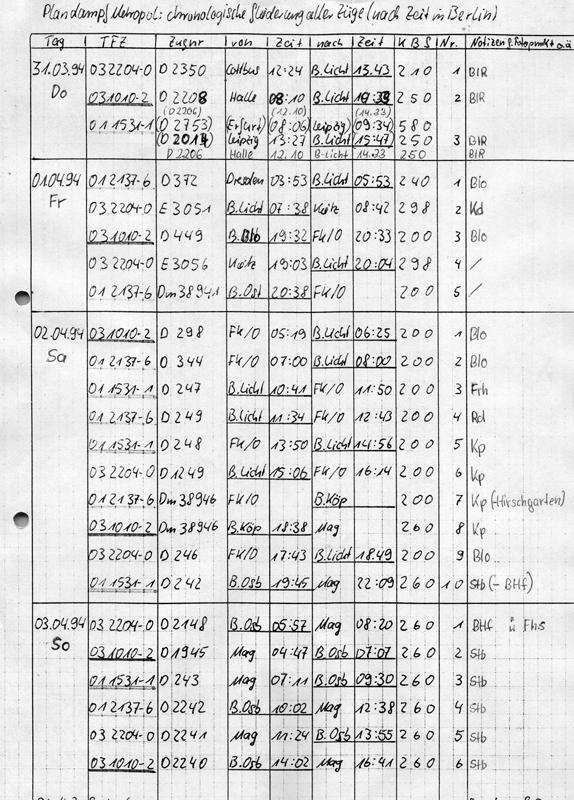 Plandampf Metropol: chronologische Gliederung aller Züge (nach Zeit in Berlin)
Tag TFZ Zugnr von Zeit nach Zeit KBS Nr. Notizen z. Fotopunkt o.ä
31.03.94 032204-0 D 2350 Cottbus 12:24 B.Licht 13.43 210 1 BIR
Do 031010-2 D 2208 Halle 08:10 B.Licht 250 2 BIR
(D2206) (12.10) (14.23)
011531-1 (D 2753) (Erfurt) (08:06) Leipzig) (09:34) 580
(D 2017 Leipzig 13:27 B.Licht 15:47) 250 3 BIR
D 2206 Halle 12.10 B-Licht 14.23 250 BIR
01.04.94 012137-6 D372 Dresden 03:53 B.Licht 05:53 240 1 Blo
Fr 032204-0 E3051 B.Licht 07:38 08:42 298 2 Kd
031010-2 D449 B.Blo 19:32 Fk/O 20:33 200 3 Blo
032204-0 E3056 19:03 B.Licht 20:04 298 4 /
012137-6 Dm38941 B.Ost 20:38 FK/O 200 5 /
02.04.94 031010-2 D 298 FK/O 05:19 B.Licht 06:25 200 1 Blo
Sa 012137-6 D 344 FK/O 07:00 B.Licht 08:00 200 2 Blo
011531-1 D 247 B.Licht 10:41 FK/O 11:50 200 3 Frh
012137-6 D 249 B.Licht 11:34 FK/O 12:43 200 4 Rd
011531-1 D 248 FK/O 13:50 B.Licht 14:56 200 5 Kp
032204-0 D1249 B.Licht 15:06 FK/O 16:14 200 6 Kp
012137-6 Dm38946 FK/O B.Köp 200 7 Kp (Hirschgarten)
031010-2 Dm38946 B.Köp 18:38 Mag 260 8 Kp
032204-0 D 246 FK/O 17:43 B.Licht 18.49 200 9 Blo
011531-1 D 242 B.Osb 19:45 Mag 22:09 260 10 Stb (-BHf)
03.04.94 032204-0 D2148 B.Osb 05:57 Mag 08:20 260 1 BHf ü Fhs
So 031010-2 D1945 Mag 04:47 B.Osb 07:07 260 2 Stb
011531-1 D 243 Mag 07:11 B.Osb 09:30 260 3 Stb
012137-6 D2242 B.Osb 10:02 Mag 12:38 260 4 Stb
032204-0 D2241 Mag 11:24 B.Osb 13:55 260 5 Stb
031010-2 D2240 B.Osb 14:02 Mag 16:41 260 6 Stb